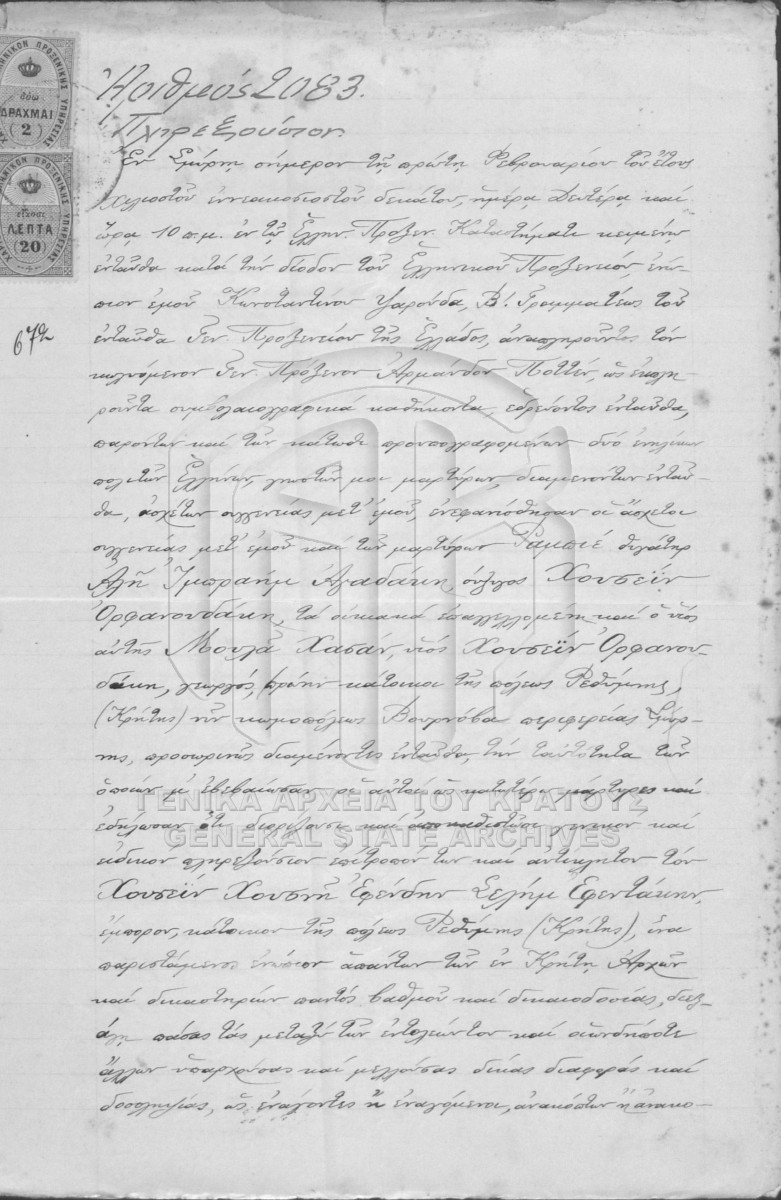 ΕΛΛΗΝΙΚΟΝ ΠΡΟΞΕΝΙΚΗΣ ΥΠΗΡΕΣΙΑΣ
δύο
ΔΡΑΧΜΑΙ
(2)
ΕΛΛΗΝΙΚΟΝ ΠΡΟΞΕΝΙΚΗΣ ΥΠΗΡΕΣΙΑΣ
εἴκοσι
ΛΕΠΤΑ
(20)
67
Ἀριθμός 2083.
Πληρεξούσιον.
Ἐν Σμύρνῃ σήμερον τῇ πρώτῃ Φεβρουαρίου τοῦ ἔτους
χιλιοστοῦ ἐννεακοσιοστοῦ δεκάτου, ἡμέρᾳ Δευτέρᾳ καί
ὥρᾳ 10 π.μ. ἐν τῷ Ἑλλην. Προξεν. Καταστήματι κειμένῳ
ἐνταῦθα κατά τήν ὁδόν τοῦ Ἑλληνικοῦ Προξενείου, ἐνώ-
πιον ἐμοῦ Κωνσταντίνου Ψαρούδα, Β΄. Γραμματέως τοῦ
ἐνταῦθα Γεν. Προξενείου τῆς Ἑλλάδος, ἀναπληροῦντος τόν
κωλυόμενον Γεν. Πρόξενον Ἀρμάνδον Ποττέν, ὡς ἐκπλη-
ροῦντα συμβολαιογραφικά καθήκοντα, ἑδρεύοντος ἐνταῦθα,
παρόντων καί τῶν κάτωθι προσυπογραφομένων δύο ἐνηλίκων
πολιτῶν Ἑλλήνων, γνωστῶν μοι μαρτύρων, διαμενόντων ἐνταῦ-
θα, ἀσχέτων συγγενείας μετ' ἐμοῦ, ἐνεφανίσθησαν οἱ ἄσχετοι
συγγενείας μετ' ἐμοῦ καί τῶν μαρτύρων Ραμπιέ θυγάτηρ
Ἀλῆ Ἰμπραήμ Ἀγαδάκη, σύζυγος Χουσεΐν
Ὀρφανουδάκη, τά οἰκιακά ἐπαγγελλομένη καί ὁ υἱός
αὐτῆς Μουλᾶ Χασάν, υἱός Χουσεΐν Ὀρφανου-
δάκη, γεωργός, πρώην κάτοικοι τῆς πόλεως Ρεθύμνης,
(Κρήτης) νῦν κωμοπόλεως Βουρνόβα περιφερείας Σμύρ-
νης, προσωρινῶς διαμένοντες ἐνταῦθα, τήν ταὐτότητα τῶν
ὁποίων μ' ἐβεβαίωσαν οἱ αὐτοί ὡς κατωτέρω μάρτυρες καί
ἐδήλωσαν ὅτι διορίζουσι καί ἀποκαθιστῶσι γενικόν καί
εἰδικόν πληρεξούσιον ἐπίτροπόν των καί ἀντίκλητον τόν
Χουσεΐν Χουσνῆ Ἐφένδην Σελήμ Ἐφεντάκην,
ἔμπορον, κάτοικον τῆς πόλεως Ρεθύμνης (Κρήτης), ἵνα
παριστάμενος ἐνώπιον ἁπάντων τῶν ἐν Κρήτῃ Ἀρχῶν
καί δικαστηρίων παντός βαθμοῦ καί δικαιοδοσίας, διεξ-
άγῃ πάσας τάς μεταξύ τῶν ἐντολέων του καί οἱωνδήποτε
ἄλλων ὑπαρχούσας καί μελλούσας δίκας διαφοράς καί
δοσοληψίας, ὡς ἐνάγοντες ἤ ἐναγόμενοι, ἀνακόπτων ἤ ἀνακο-
ΓΕΝΙΚΑ ΑΡΧΕΙΑ ΤΟΥ ΚΡΑΤΟΥΣ
GENERAL STATE ARCHIVES